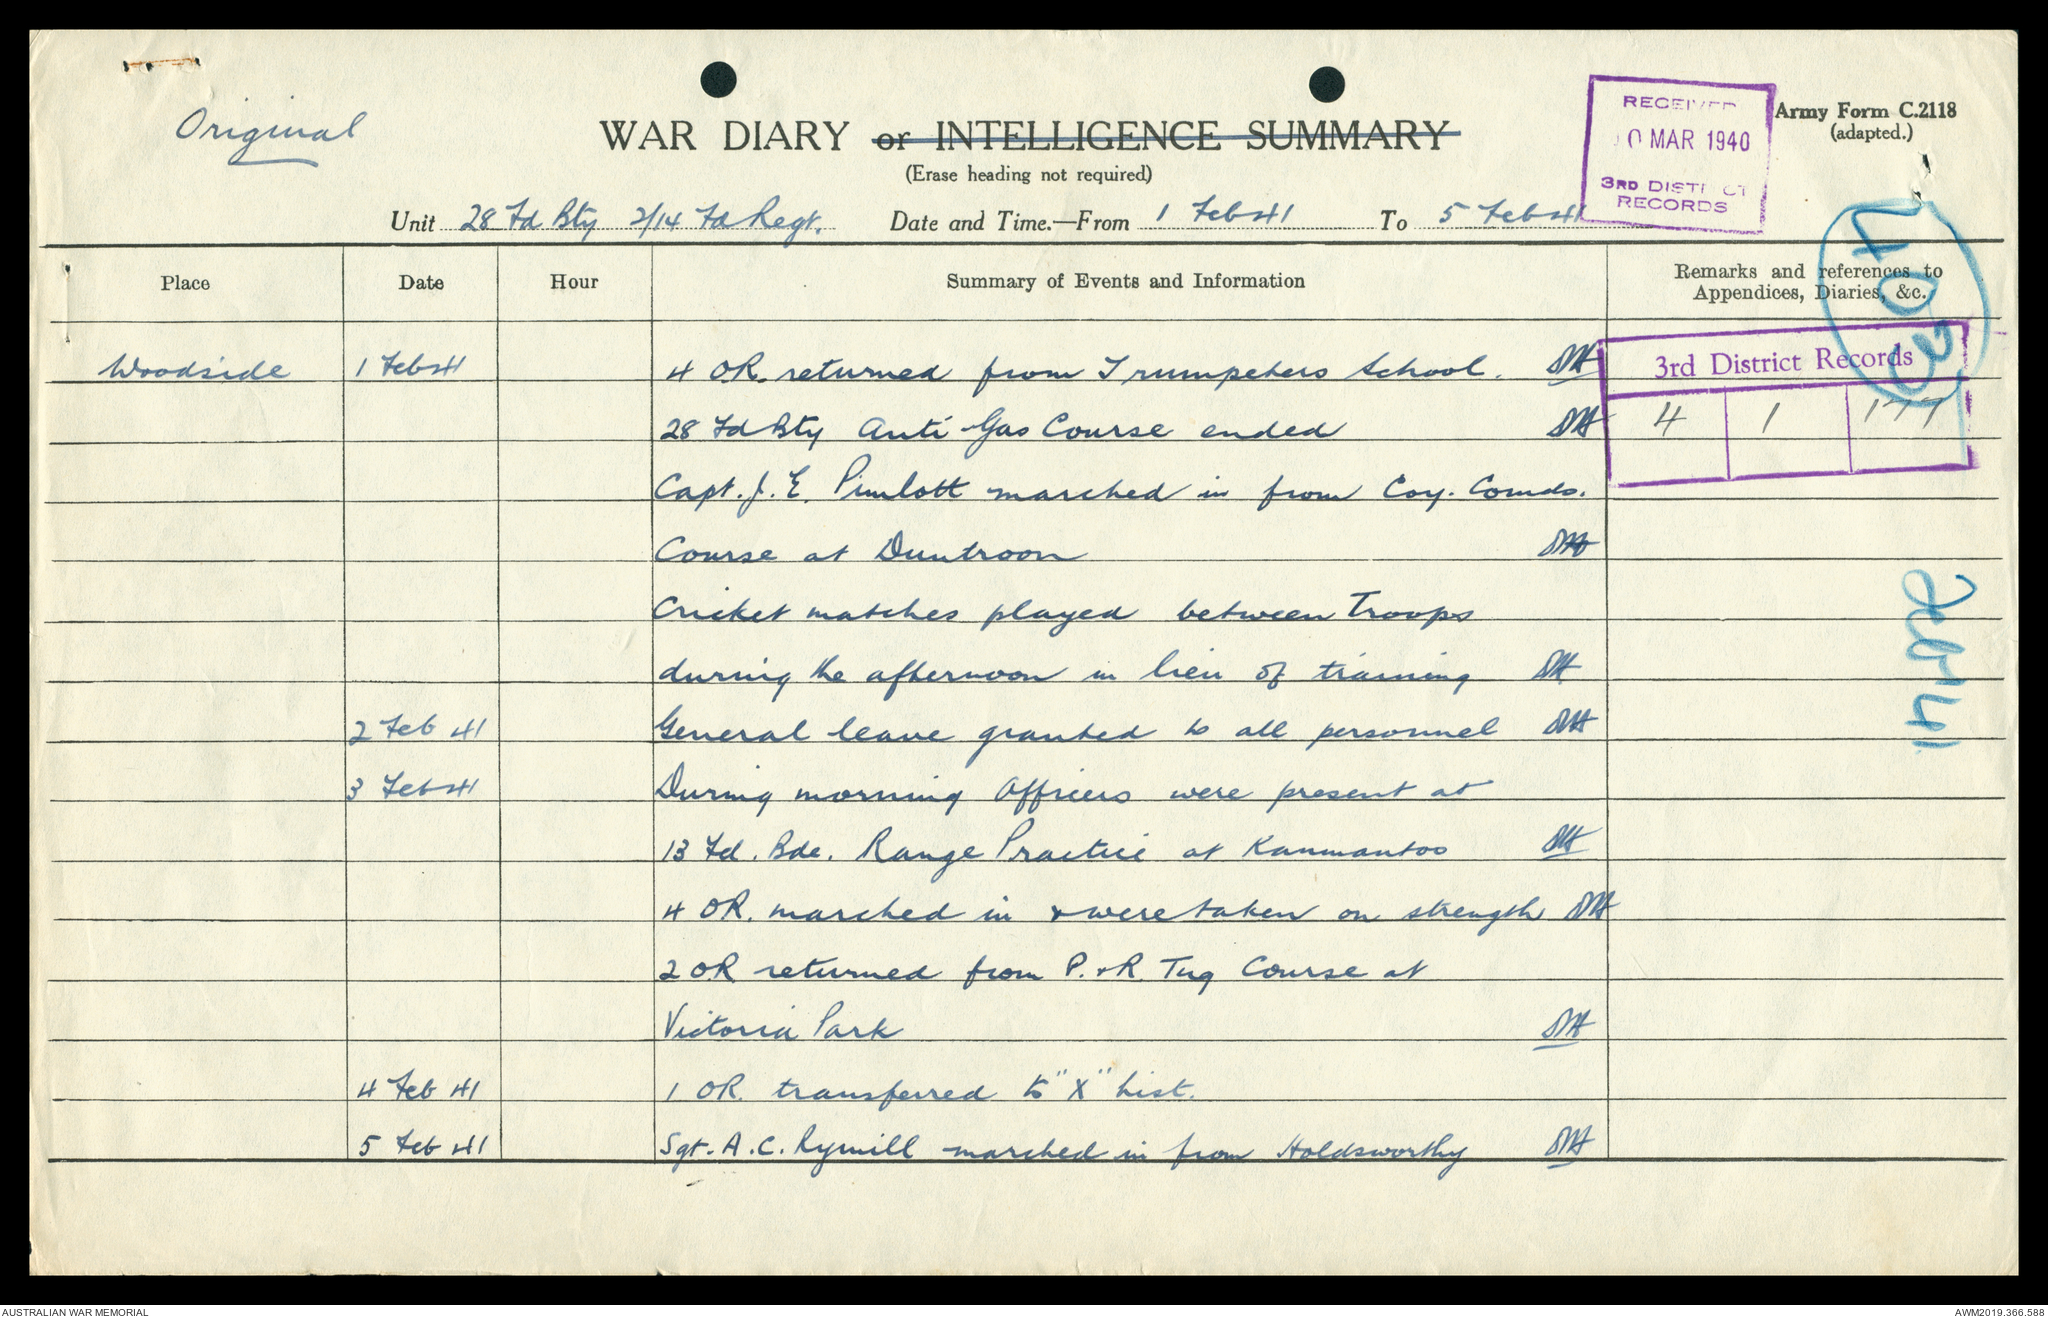 Original
WAR DIARY or INTELLIGENCE SUMMARY
(Erase heading not required)
Army Form C.2118
(adapted.)
RECEIVED
0 MAR 1940
3RD DISTRICT
RECORDS
Unit 28 Fd Bty 2/14 Fd Regt. Date and Time.—From 1 Feb 41 To 5 Feb 41
Place Date Hour Summary of Events and Information Remarks and references to
Appendices, Diaries, &c.
3rd District Records
4 1 177
Woodside 1 Feb 41 4 O.R. returned from Trumpeters School.
28 Fd Bty Anti Gas Course ended
Capt. J. E. Pimlott marched in from Coy. Comds.
Course at Duntroon
Cricket matches played between Troops
during the afternoon in lieu of training
2 Feb 41 General leave granted to all personnel
3 Feb 41 During morning Officers were present at
13 Fd. Bde. Range Practice at Kanmantoo
4 OR. marched in & were taken on strength
2 OR returned from P. & R. Tng Course at
Victoria Park
4 Feb 41 1 OR. transferred to "X" List.
5 Feb 41 Sgt. A. C. Rymill marched in from Holdsworthy
AUSTRALIAN WAR MEMORIAL
AWM2019.366.588